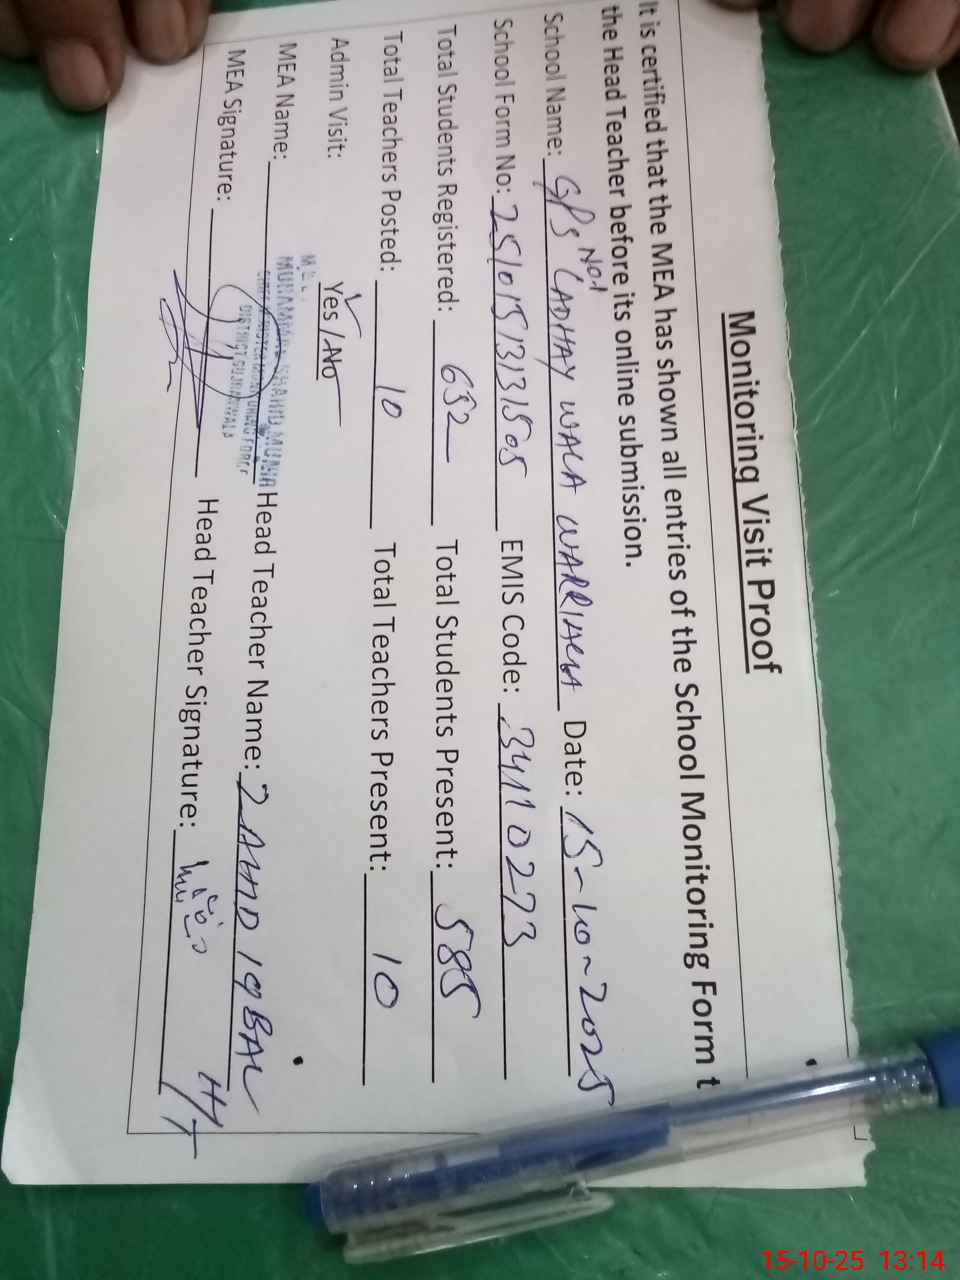 Monitoring Visit Proof
It is certified that the MEA has shown all entries of the School Monitoring Form t
the Head Teacher before its online submission.
School Name: GPS No.1 LADHAY WALA WARRIACH Date: 15-10-2025
School Form No: 25101513131505 EMIS Code: 34110273
Total Students Registered: 632 Total Students Present: 585
Total Teachers Posted: 10 Total Teachers Present: 10
Admin Visit: Yes / No
MEA Name: MUHAMMAD Head Teacher Name: ZAHID IQBAL
DISTRICT GUJRANWALA
MEA Signature: Head Teacher Signature:
H/T
15-10-25 13:14